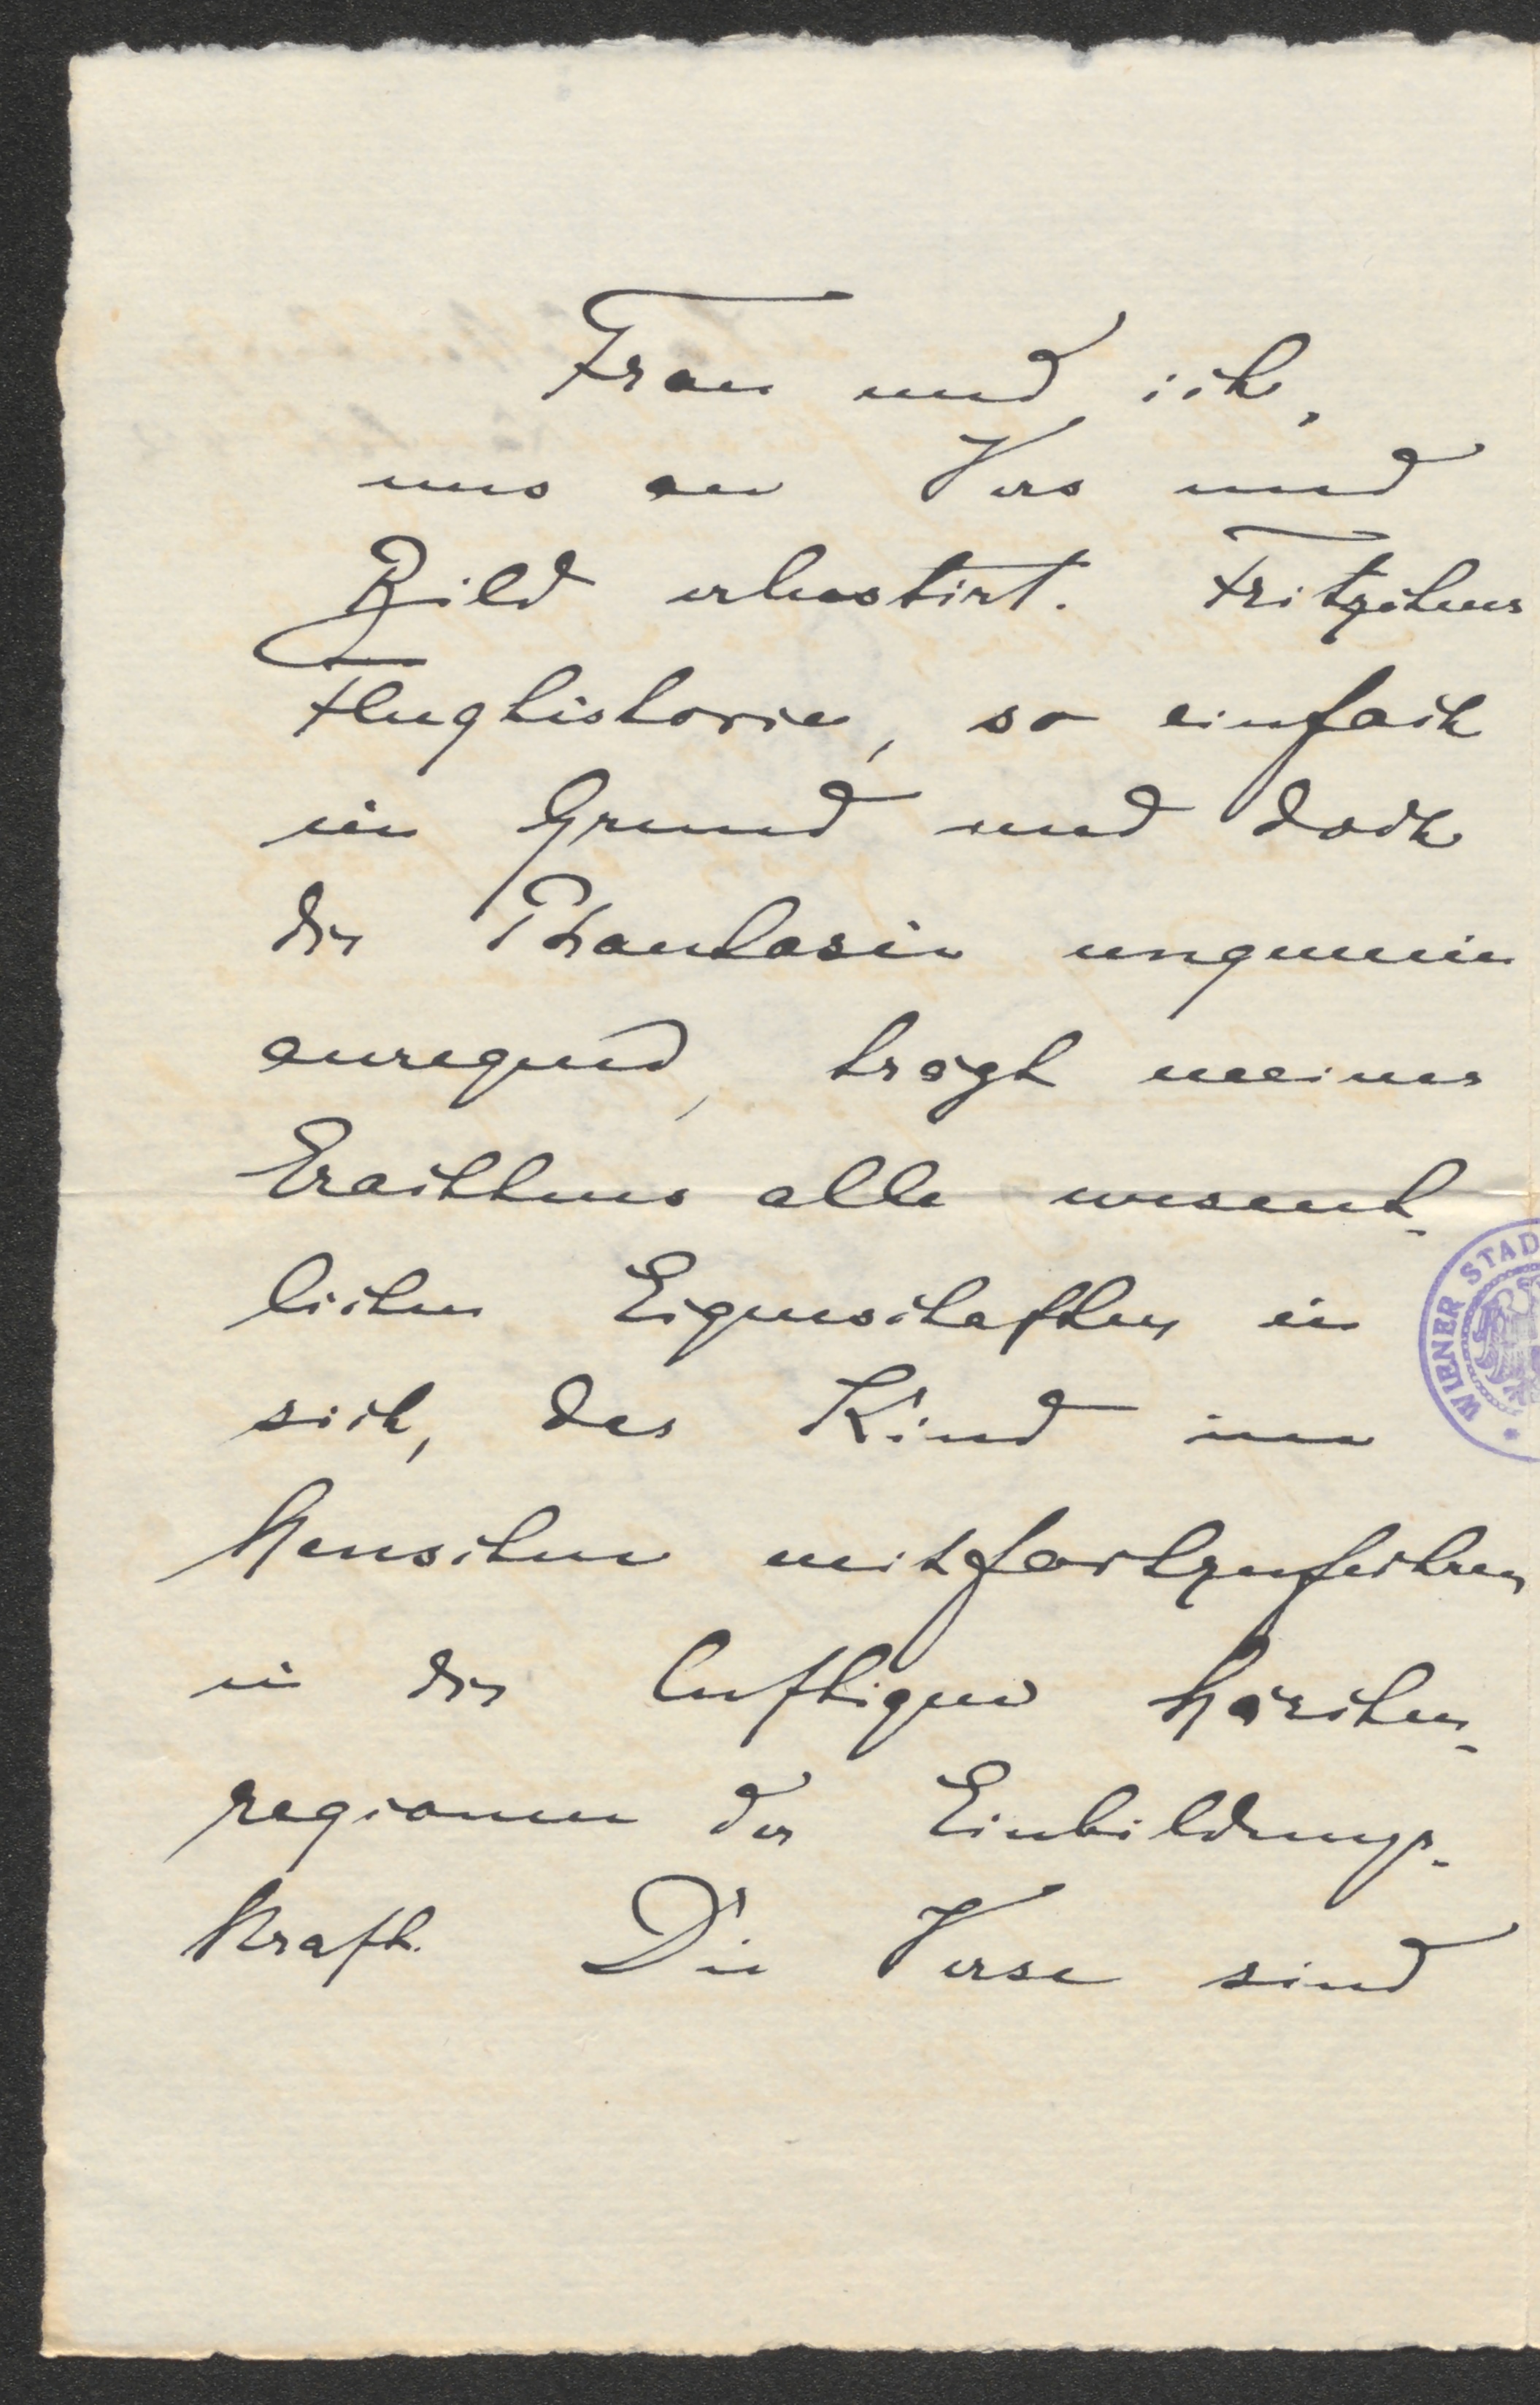 Frau und ich,
uns an Vers und
Bild erlustirt. Fritzchens
Flughistorie, so einfach
im Grund und doch
die Phantasie ungemein
anregend, trägt meines
Erachtens alle wesent-
lichen Eigenschaften in
sich, das Kind im
Menschen mitfortzuführen
in die luftigen Märchen-
regionen der Einbildungs-
kraft. Die Verse sind
WIENER STAD